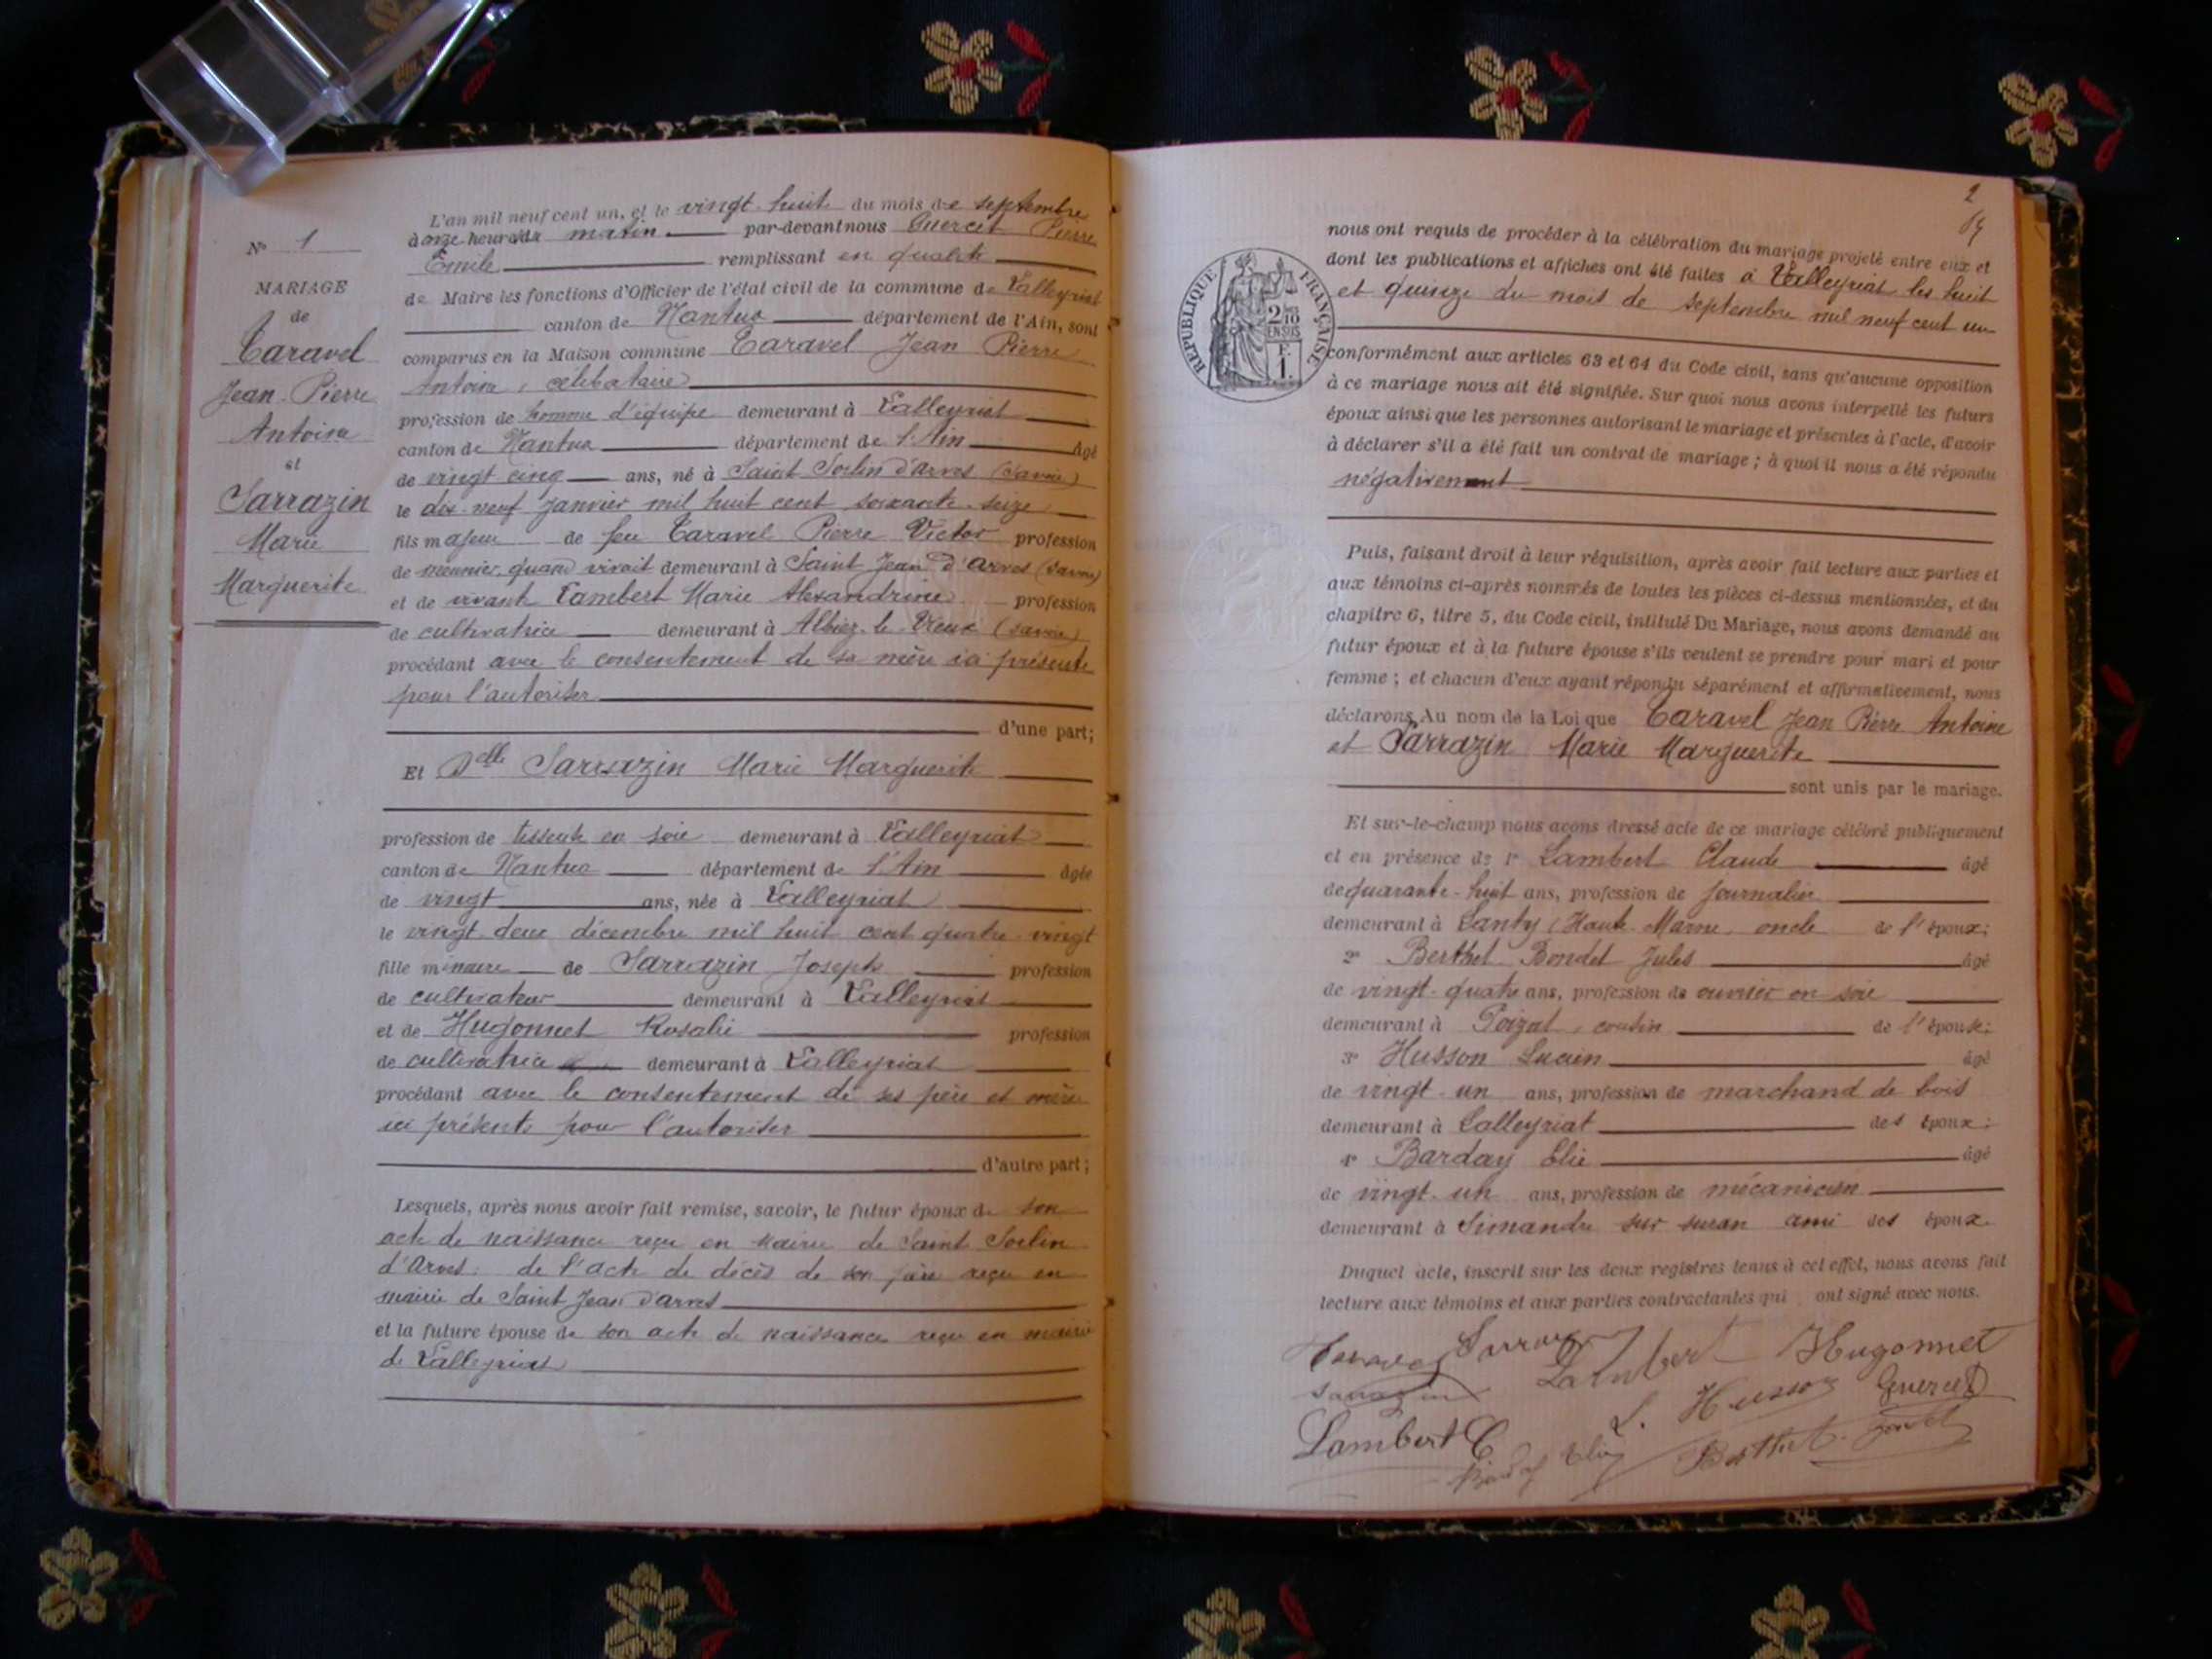 N° 1
MARIAGE
de
Taravel
Jean-Pierre
Antoine
et
Sarrazin
Marie
Marguerite
L'an mil neuf cent un, et le vingt-huit du mois de septembre
à onze heures du matin par-devant nous Guercet Pierre
Emile remplissant en qualité
de Maire les fonctions d'Officier de l'état civil de la commune de Lalleyriat
canton de Nantua département de l'Ain, sont
comparus en la Maison commune Taravel Jean Pierre
Antoine, célibataire
profession de homme d'équipe demeurant à Lalleyriat
canton de Nantua département de l'Ain Âgé
de vingt cinq ans, né à Saint Sorlin d'arves (Savoie)
le dix-neuf janvier mil huit cent soixante-seize
fils majeur de feu Taravel Pierre Victor profession
de meunier, quand vivait demeurant à Saint Jean d'arves (Savoie)
et de vivante Lambert Marie Alexandrine profession
de cultivatrice demeurant à Albiez-le-Vieux (Savoie)
procédant avec le consentement de sa mère ici présente
pour l'autoriser
d'une part;
Et Dlle Sarrazin Marie Marguerite
profession de tisseuse en soie demeurant à Lalleyriat
canton de Nantua département de l'Ain âgée
de vingt ans, née à Lalleyriat
le vingt-deux décembre mil huit cent quatre-vingt
fille mineure de Sarrazin Joseph profession
de cultivateur demeurant à Lalleyriat
et de Hugonnet Rosalie profession
de cultivatrice demeurant à Lalleyriat
procédant avec le consentement de ses père et mère
ici présents pour l'autoriser
d'autre part;
Lesquels, après nous avoir fait remise, savoir, le futur époux de son
acte de naissance reçu en Mairie de Saint Sorlin
d'Arves, de l'acte de décès de son père reçu en
mairie de Saint Jean d'arves
et la future épouse de son acte de naissance reçu en mairie
de Lalleyriat
2
nous ont requis de procéder à la célébration du mariage projeté entre eux et
dont les publications et affiches ont été faites à Lalleyriat les huit
et quinze du mois de septembre mil neuf cent un
REPUBLIQUE FRANÇAISE
2 10
EN SUS
F.
1.
conformément aux articles 63 et 64 du Code civil, sans qu'aucune opposition
à ce mariage nous ait été signifiée. Sur quoi nous avons interpellé les futurs
époux ainsi que les personnes autorisant le mariage et présentes à l'acte, d'avoir
à déclarer s'il a été fait un contrat de mariage; à quoi il nous a été répondu
négativement
Puis, faisant droit à leur réquisition, après avoir fait lecture aux parties et
aux témoins ci-après nommés de toutes les pièces ci-dessus mentionnées, et du
chapitre 6, titre 5, du Code civil, intitulé Du Mariage, nous avons demandé au
futur époux et à la future épouse s'ils veulent se prendre pour mari et pour
femme; et chacun d'eux ayant répondu séparément et affirmativement, nous
déclarons Au nom de la Loi que Taravel Jean Pierre Antoine
et Sarrazin Marie Marguerite
sont unis par le mariage.
Et sur-le-champ nous avons dressé acte de ce mariage célébré publiquement
et en présence de 1° Lambert Claude âgé
de quarante-huit ans, profession de journalier
demeurant à Lanty (Haute-Marne, oncle de l'époux;
2° Berthet-Bondet Jules âgé
de vingt-quatre ans, profession de ouvrier en soie
demeurant à Poizat, cousin de l'épouse;
3° Husson Lucien âgé
de vingt-un ans, profession de marchand de bois
demeurant à Lalleyriat des époux;
4° Barday Elie âgé
de vingt-un ans, profession de mécanicien
demeurant à Simandre sur suran ami des époux.
Duquel acte, inscrit sur les deux registres tenus à cet effet, nous avons fait
lecture aux témoins et aux parties contractantes qui ont signé avec nous.
Taravel Sarrazin Lambert Hugonnet
Sarrazin L. Husson Guercet
Lambert C Elie Berthet-Bondet